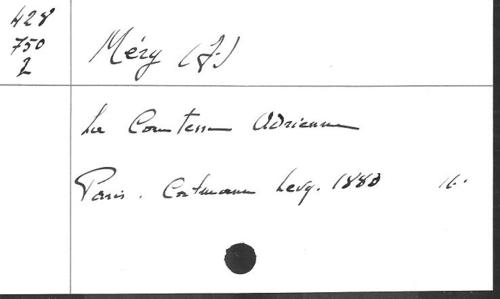 428
750
2
Méry (J.)
La Comtesse Adrienne
Paris. Calmann Levy. 1880 16.